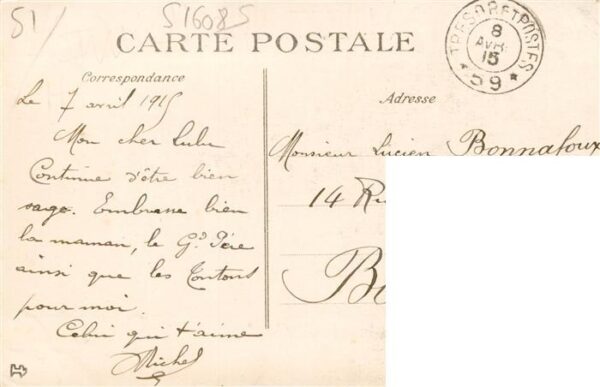 51/
S16085
CARTE POSTALE
TRESOR ET POSTES
8
AVR
15
* 59 *
Correspondance
Adresse
Le 7 avril 1915
Mon cher Lulu
Continue d'être bien
sage. Embrasse bien
la maman, le Gd Père
ainsi que les Tontons
pour moi.
Celui qui t'aime
Michel
Monsieur Lucien Bonnafoux
14 Ru